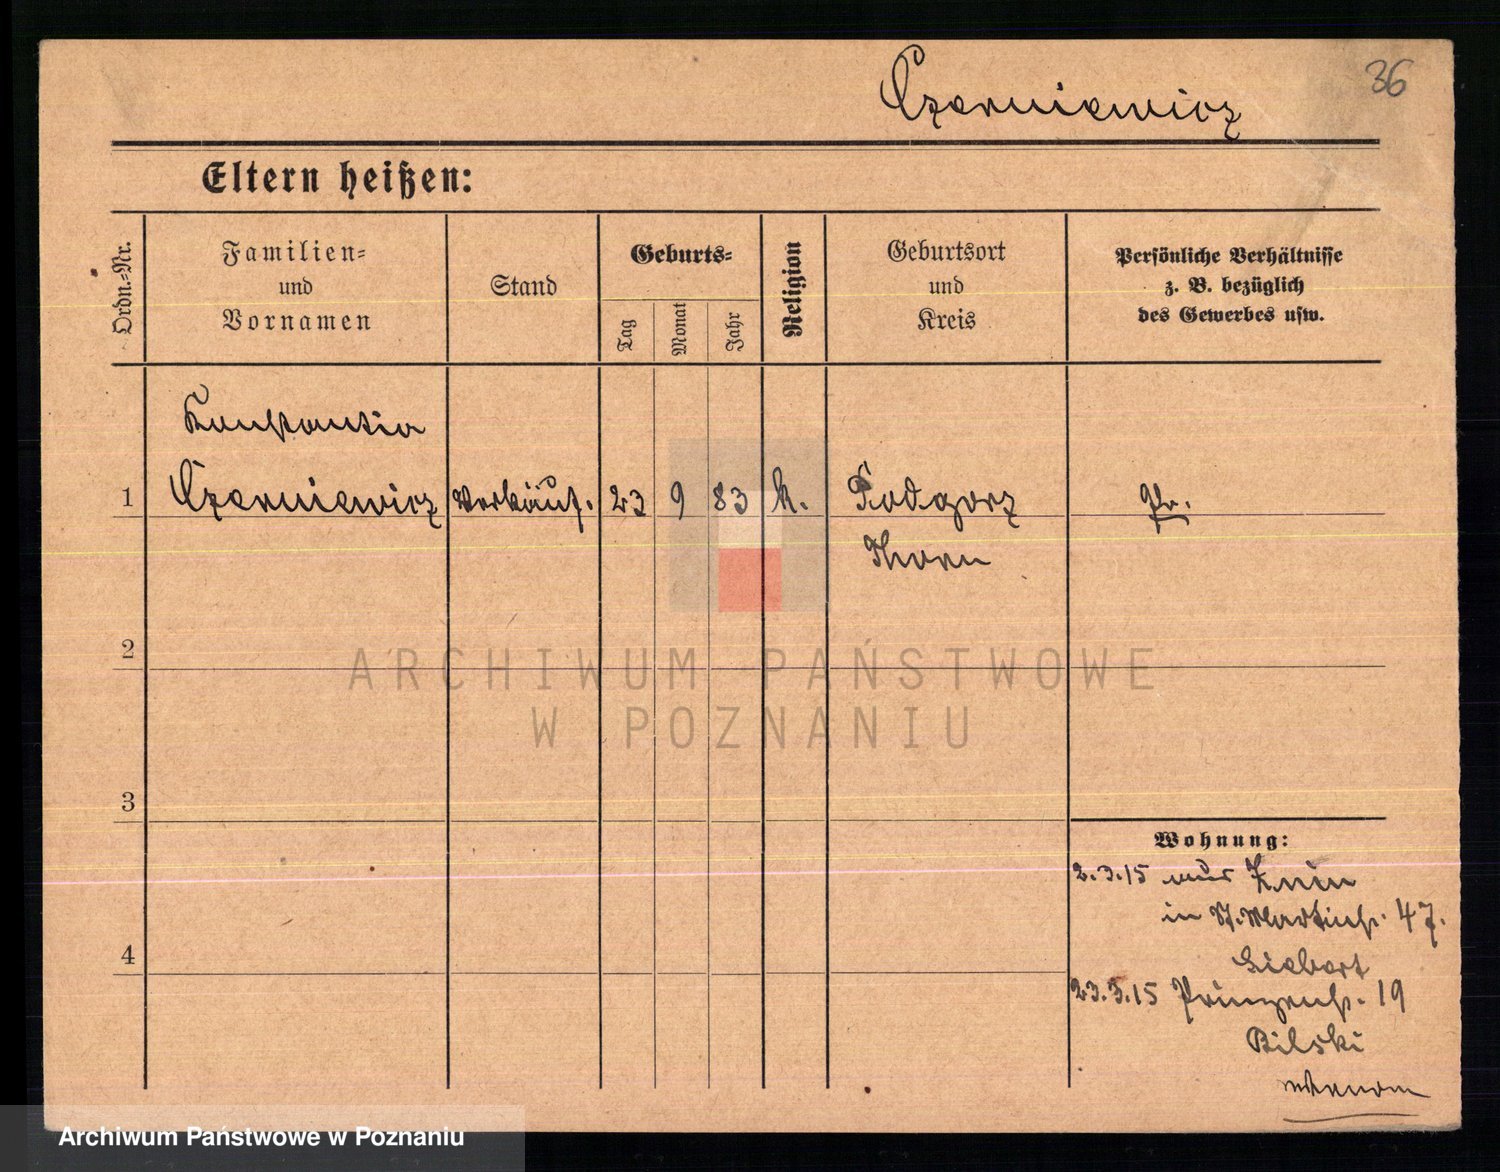 36
Czerniewicz
Eltern heißen:
Ordn.=Nr.
Familien=
und
Vornamen
Stand
Geburts=
Tag
Monat
Jahr
Religion
Geburtsort
und
Kreis
Persönliche Verhältnisse
z. B. bezüglich
des Gewerbes usw.
Konstantia
1 Czerniewicz Verkäuf. 23 9 83 k. Podgorz Pr.
Thorn
2
3
4
Wohnung:
2.3.15 aus Znin
in St. Martinstr. 47.
Liebert
23.3.15 Prinzenstr. 19
Bilski
ARCHIWUM PAŃSTWOWE
W POZNANIU
Archiwum Państwowe w Poznaniu